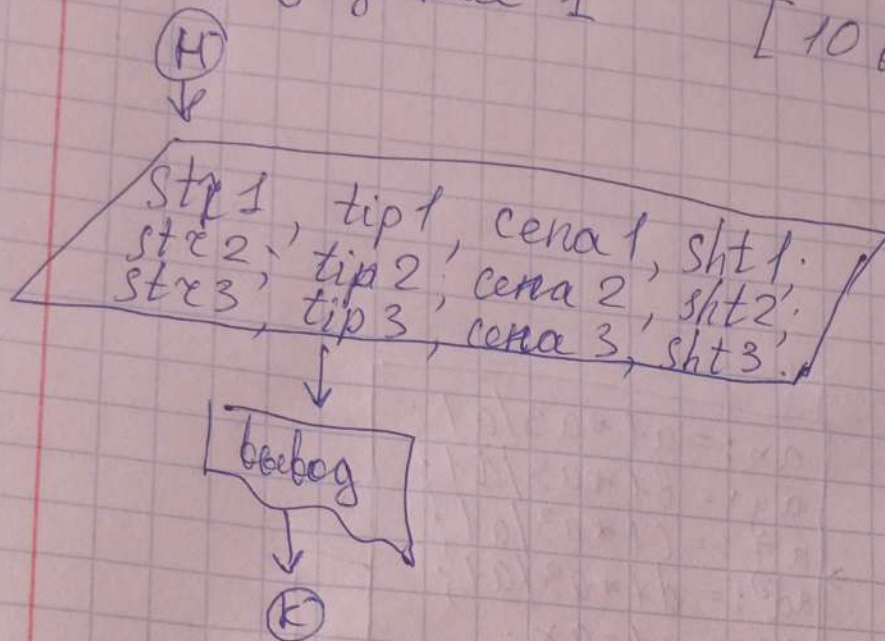 1
[ 10
Н
str1, tip1, cena1, sht1;
str2, tip2, cena2, sht2;
str3, tip3, cena3, sht3.
вывод
К